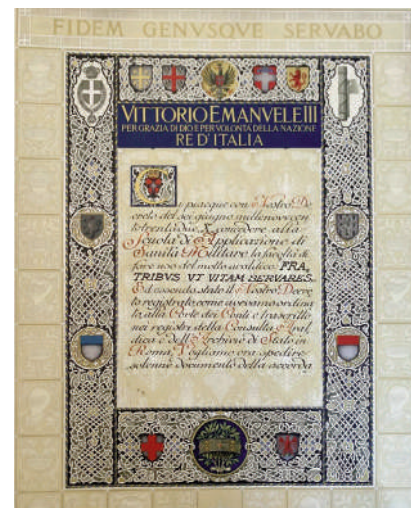 FIDEM GENVSQVE SERVABO
VITTORIO EMANVELE III
PER GRAZIA DI DIO E PER VOLONTÀ DELLA NAZIONE
RE D'ITALIA
Ci piacque con Nostro De
creto del sei giugno millenovecen
totrentadue X concedere alla
Scuola di Applicazione di
Sanità Militare la facoltà di
fare uso del motto araldico FRA
TRIBVS VT VITAM SERVARES.
Ed essendo stato il Nostro Decre
to registrato come avevamo ordina
to alla Corte dei Conti e trascritto
nei registri della Consulta Aral
dica e dell'Archivio di Stato in
Roma, Vogliamo ora spedire
solenne documento della accorda